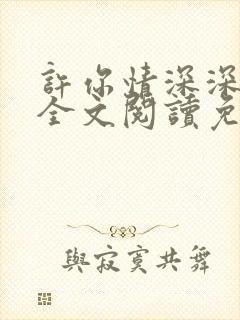 許你情深深
全文閱讀免
與寂寞共舞